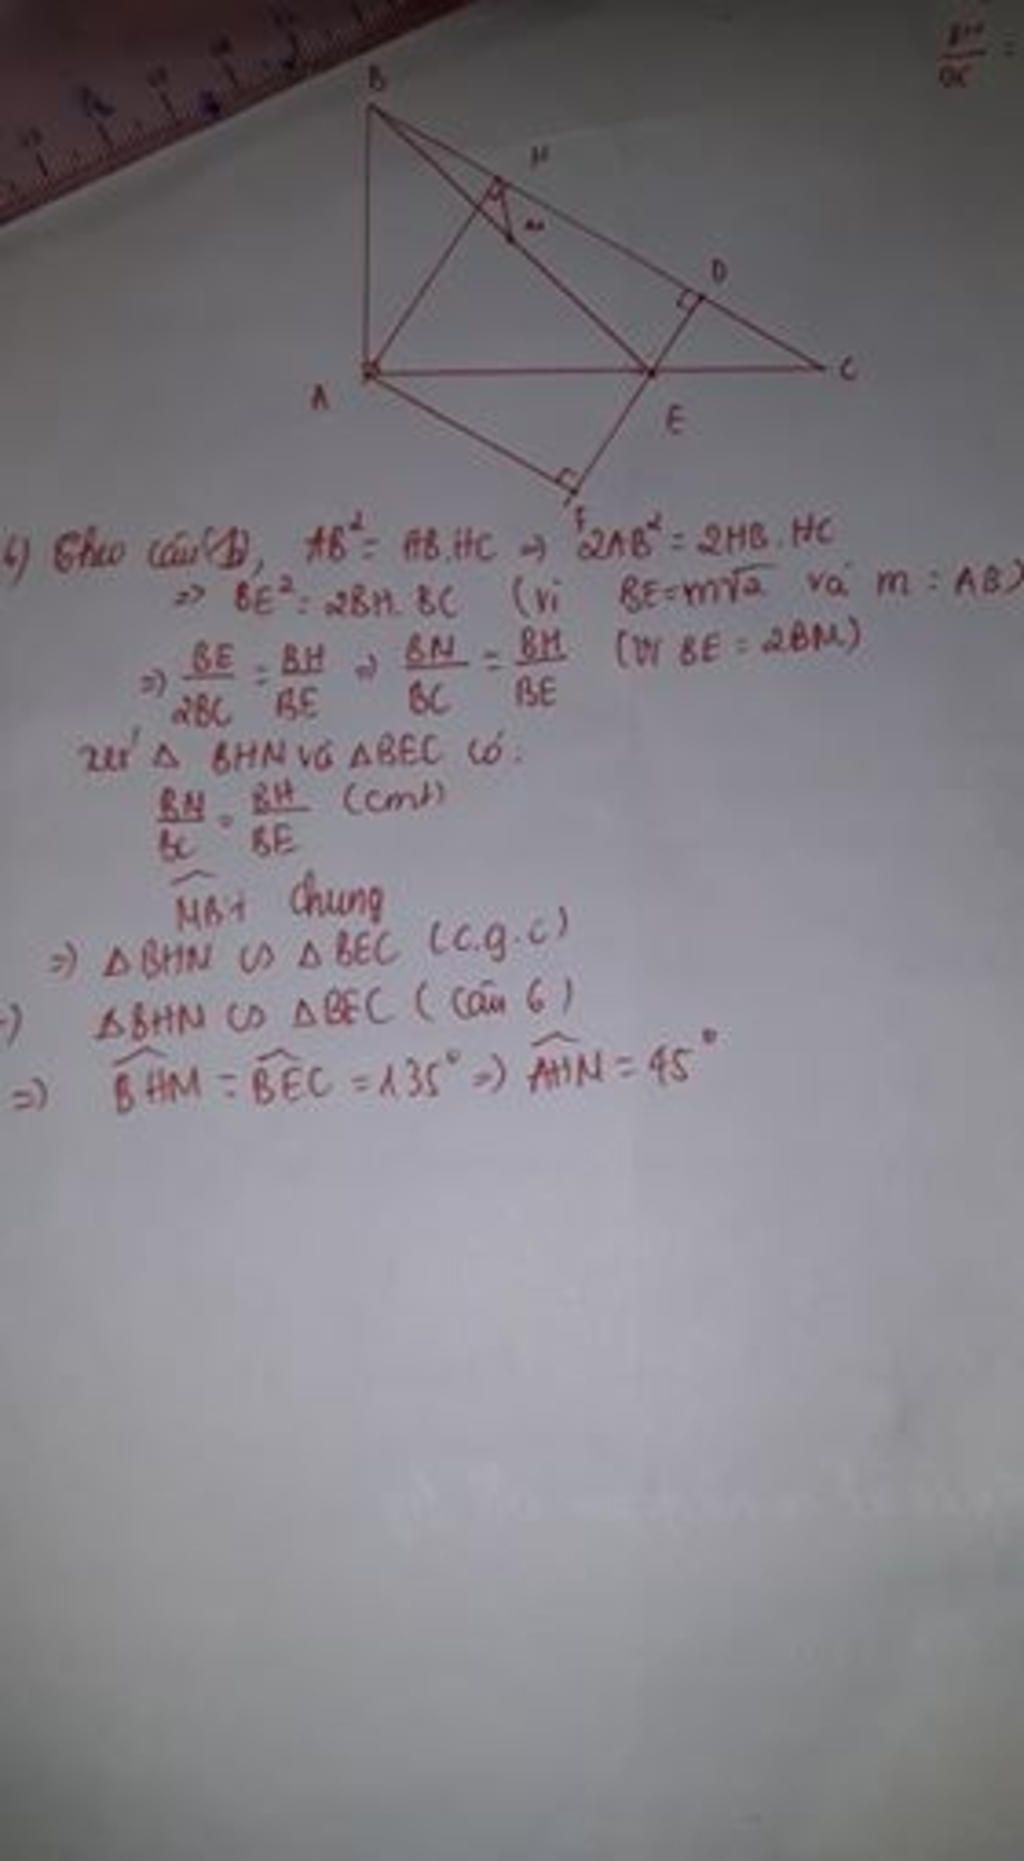 BH
DC =
B
H
M
D
A
E
C
F
6) Theo câu (1), AB² = AB.HC => 2AB² = 2HB.HC
=> BE² = 2BH.BC (vì BE=m√2 và m = AB)
=> BE/2BC = BH/BE => BM/BC = BH/BE (vì BE = 2BM)
xét Δ BHM và ΔBEC có:
BM/BC = BH/BE (cmt)
MBH chung
=> ΔBHM ∽ ΔBEC (c.g.c)
ΔBHM ∽ ΔBEC (câu 6)
=> BHM = BEC = 135° => AHM = 45°